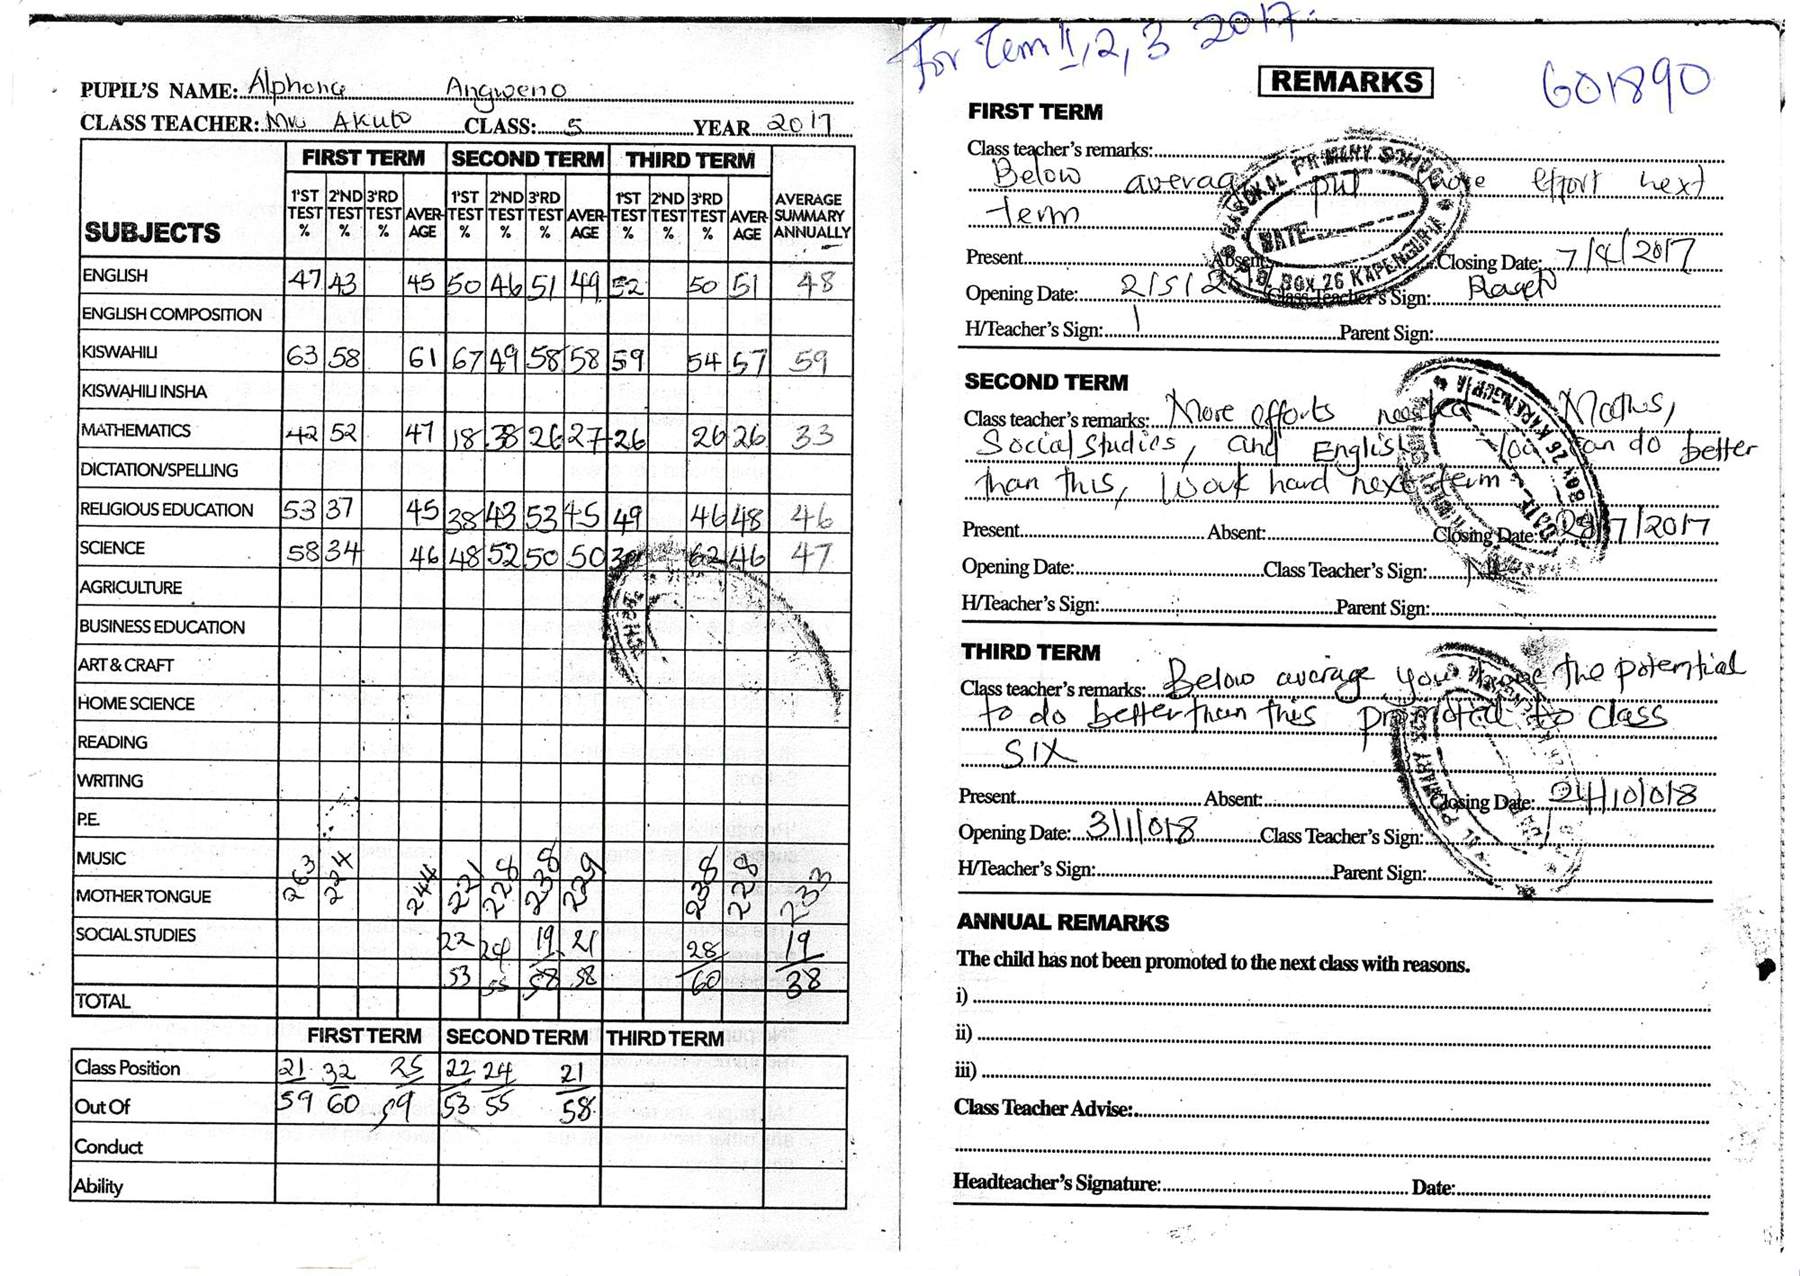 For Term 1, 2, 3 2017.
601890
PUPIL'S NAME: Alphonce Angweno
CLASS TEACHER: Mrs AKuto CLASS: 5 YEAR 2017
SUBJECTS
FIRST TERM SECOND TERM THIRD TERM
1'ST TEST % 2'ND TEST % 3'RD TEST % AVER-AGE 1'ST TEST % 2'ND TEST % 3'RD TEST % AVER-AGE 1'ST TEST % 2'ND TEST % 3'RD TEST % AVER-AGE AVERAGE SUMMARY ANNUALLY
ENGLISH 47 43 45 50 46 51 49 52 50 51 48
ENGLISH COMPOSITION
KISWAHILI 63 58 61 67 49 58 58 59 54 57 59
KISWAHILI INSHA
MATHEMATICS 42 52 47 18 38 26 27 26 26 26 33
DICTATION/SPELLING
RELIGIOUS EDUCATION 53 37 45 38 43 53 45 49 46 48 46
SCIENCE 58 34 46 48 52 50 50 30 62 46 47
AGRICULTURE
BUSINESS EDUCATION
ART & CRAFT
HOME SCIENCE
READING
WRITING
P.E.
MUSIC
MOTHER TONGUE 263 224 244 221 228 238 229 238 228 233
SOCIAL STUDIES 22 24 19 21 28 19
53 55 58 58 60 38
TOTAL
FIRST TERM SECOND TERM THIRD TERM
Class Position 21 32 25 22 24 21
Out Of 59 60 59 53 55 58
Conduct
Ability
REMARKS
FIRST TERM
Class teacher's remarks:
Below average put more effort next
term
Present Absent Closing Date: 7/4/2017
Opening Date: 2/5/2 Class Teacher's Sign:
H/Teacher's Sign: Parent Sign:
KAPENGURIA
BOX 26 KAPENGURIA
PRIMARY SCHOOL
DATE
SECOND TERM
Class teacher's remarks: More efforts needed Maths,
Social Studies, and English You can do better
than this, Work hard next term
Present Absent: Closing Date: 28/7/2017
Opening Date: Class Teacher's Sign:
H/Teacher's Sign: Parent Sign:
BOX 26 KAPENGURIA
DATE
THIRD TERM
Class teacher's remarks: Below average you have the potential
to do better than this promoted to class
SIX
Present Absent: Closing Date: 24/10/018
Opening Date: 3/1/018 Class Teacher's Sign:
H/Teacher's Sign: Parent Sign:
PRIMARY
ANNUAL REMARKS
The child has not been promoted to the next class with reasons.
i)
ii)
iii)
Class Teacher Advise:
Headteacher's Signature: Date: